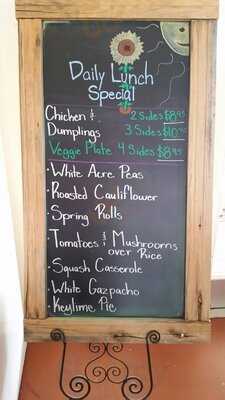 Daily Lunch
Special
Chicken & 2 Sides $8.95
Dumplings 3 Sides $10.95
Veggie Plate 4 Sides $8.95
· White Acre Peas
· Roasted Cauliflower
· Spring Rolls
· Tomatoes & Mushrooms
over Rice
· Squash Casserole
· White Gazpacho
· Keylime Pie